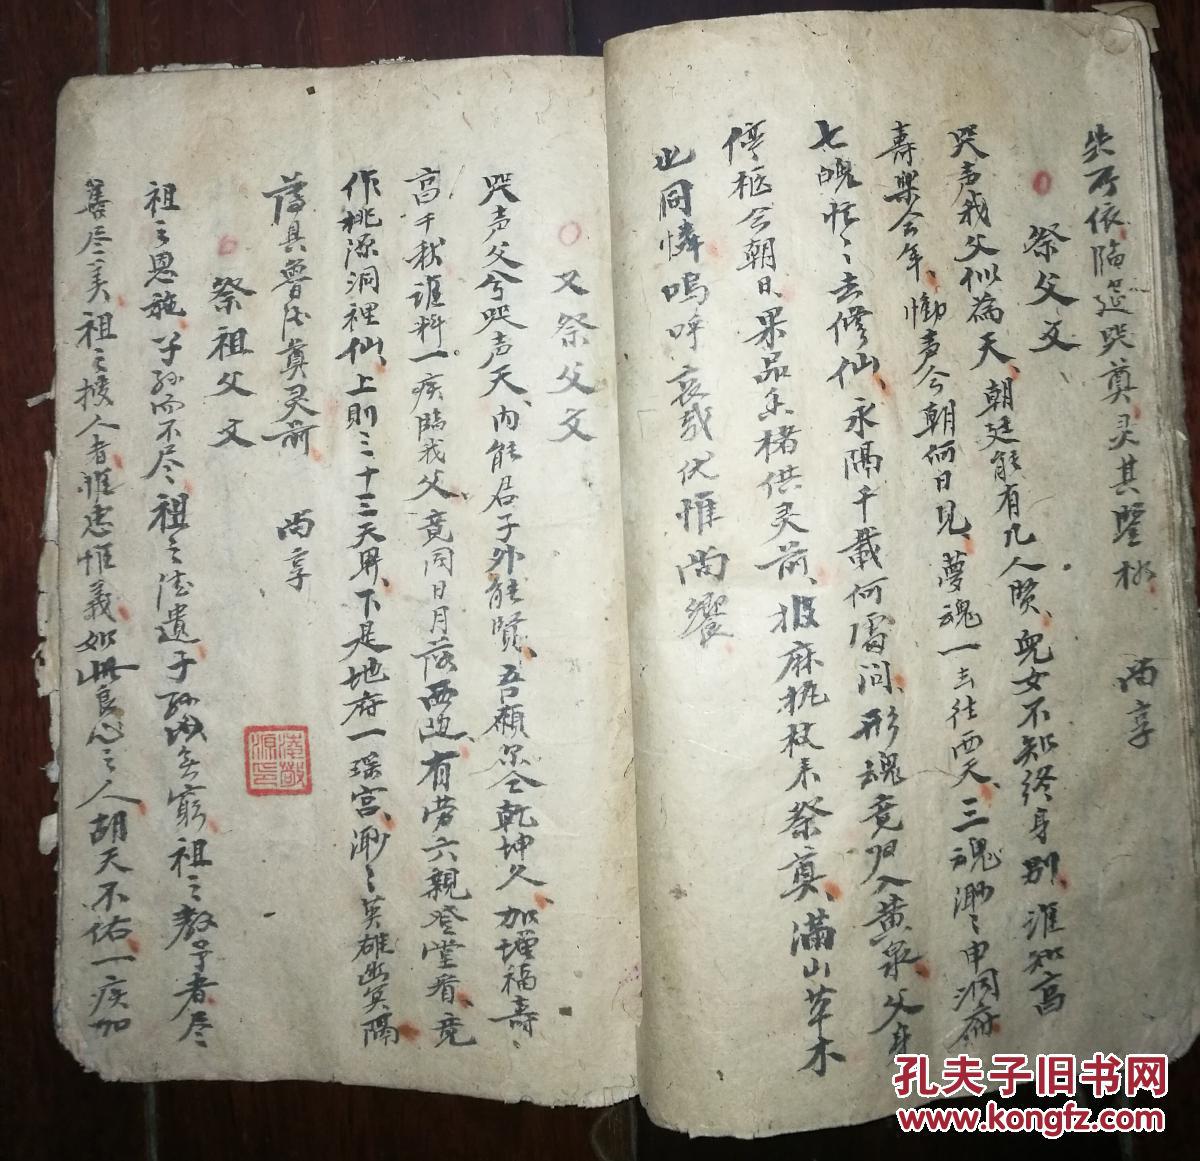 失所依臨筵哭奠灵其鑒格 尚享
祭父文
哭声我父似為天朝廷能有几人賢兒女不知终身别谁知高
寿樂今年恸声今朝何日見夢魂一去往西天三魂渺〻申洞府
七魄忙〻去修仙永隔千載何處问形魂竟归入黄泉父身
停柩今朝日果品香楮供灵前披麻执杖来祭奠满山草木
也同憐嗚呼哀哉伏惟尚饗
又祭父文
哭声父兮哭声天内能君子外能賢吾願尔仝乾坤久加增福寿〻
高千秋谁料一疾臨我父竟同日月落西边有劳六親登堂看竟
作桃源洞裡仙上則三十三天界下是地府一瑶宫渺〻英雄幽冥隔
薄具魯酒奠灵前 尚享
祭祖父文
祖之恩施子孙而不尽祖之德遺子孙而無窮祖之教予者尽
善尽美祖之接人者惟忠惟義如此良心之人胡天不佑一疾加
孔夫子旧书网
www.kongfz.com